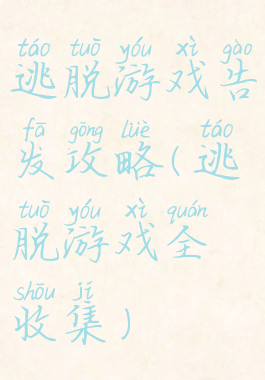 táo tuō yóu xì gào
逃脱游戏告
fā gōng lüè táo
发攻略(逃
tuō yóu xì quán
脱游戏全
shōu jí
收集)